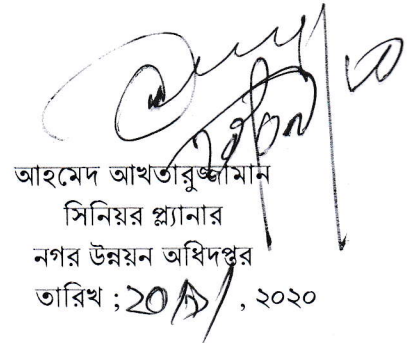 আহমেদ আখতারুজ্জামান
সিনিয়র প্ল্যানার
নগর উন্নয়ন অধিদপ্তর
তারিখ ; , ২০২০